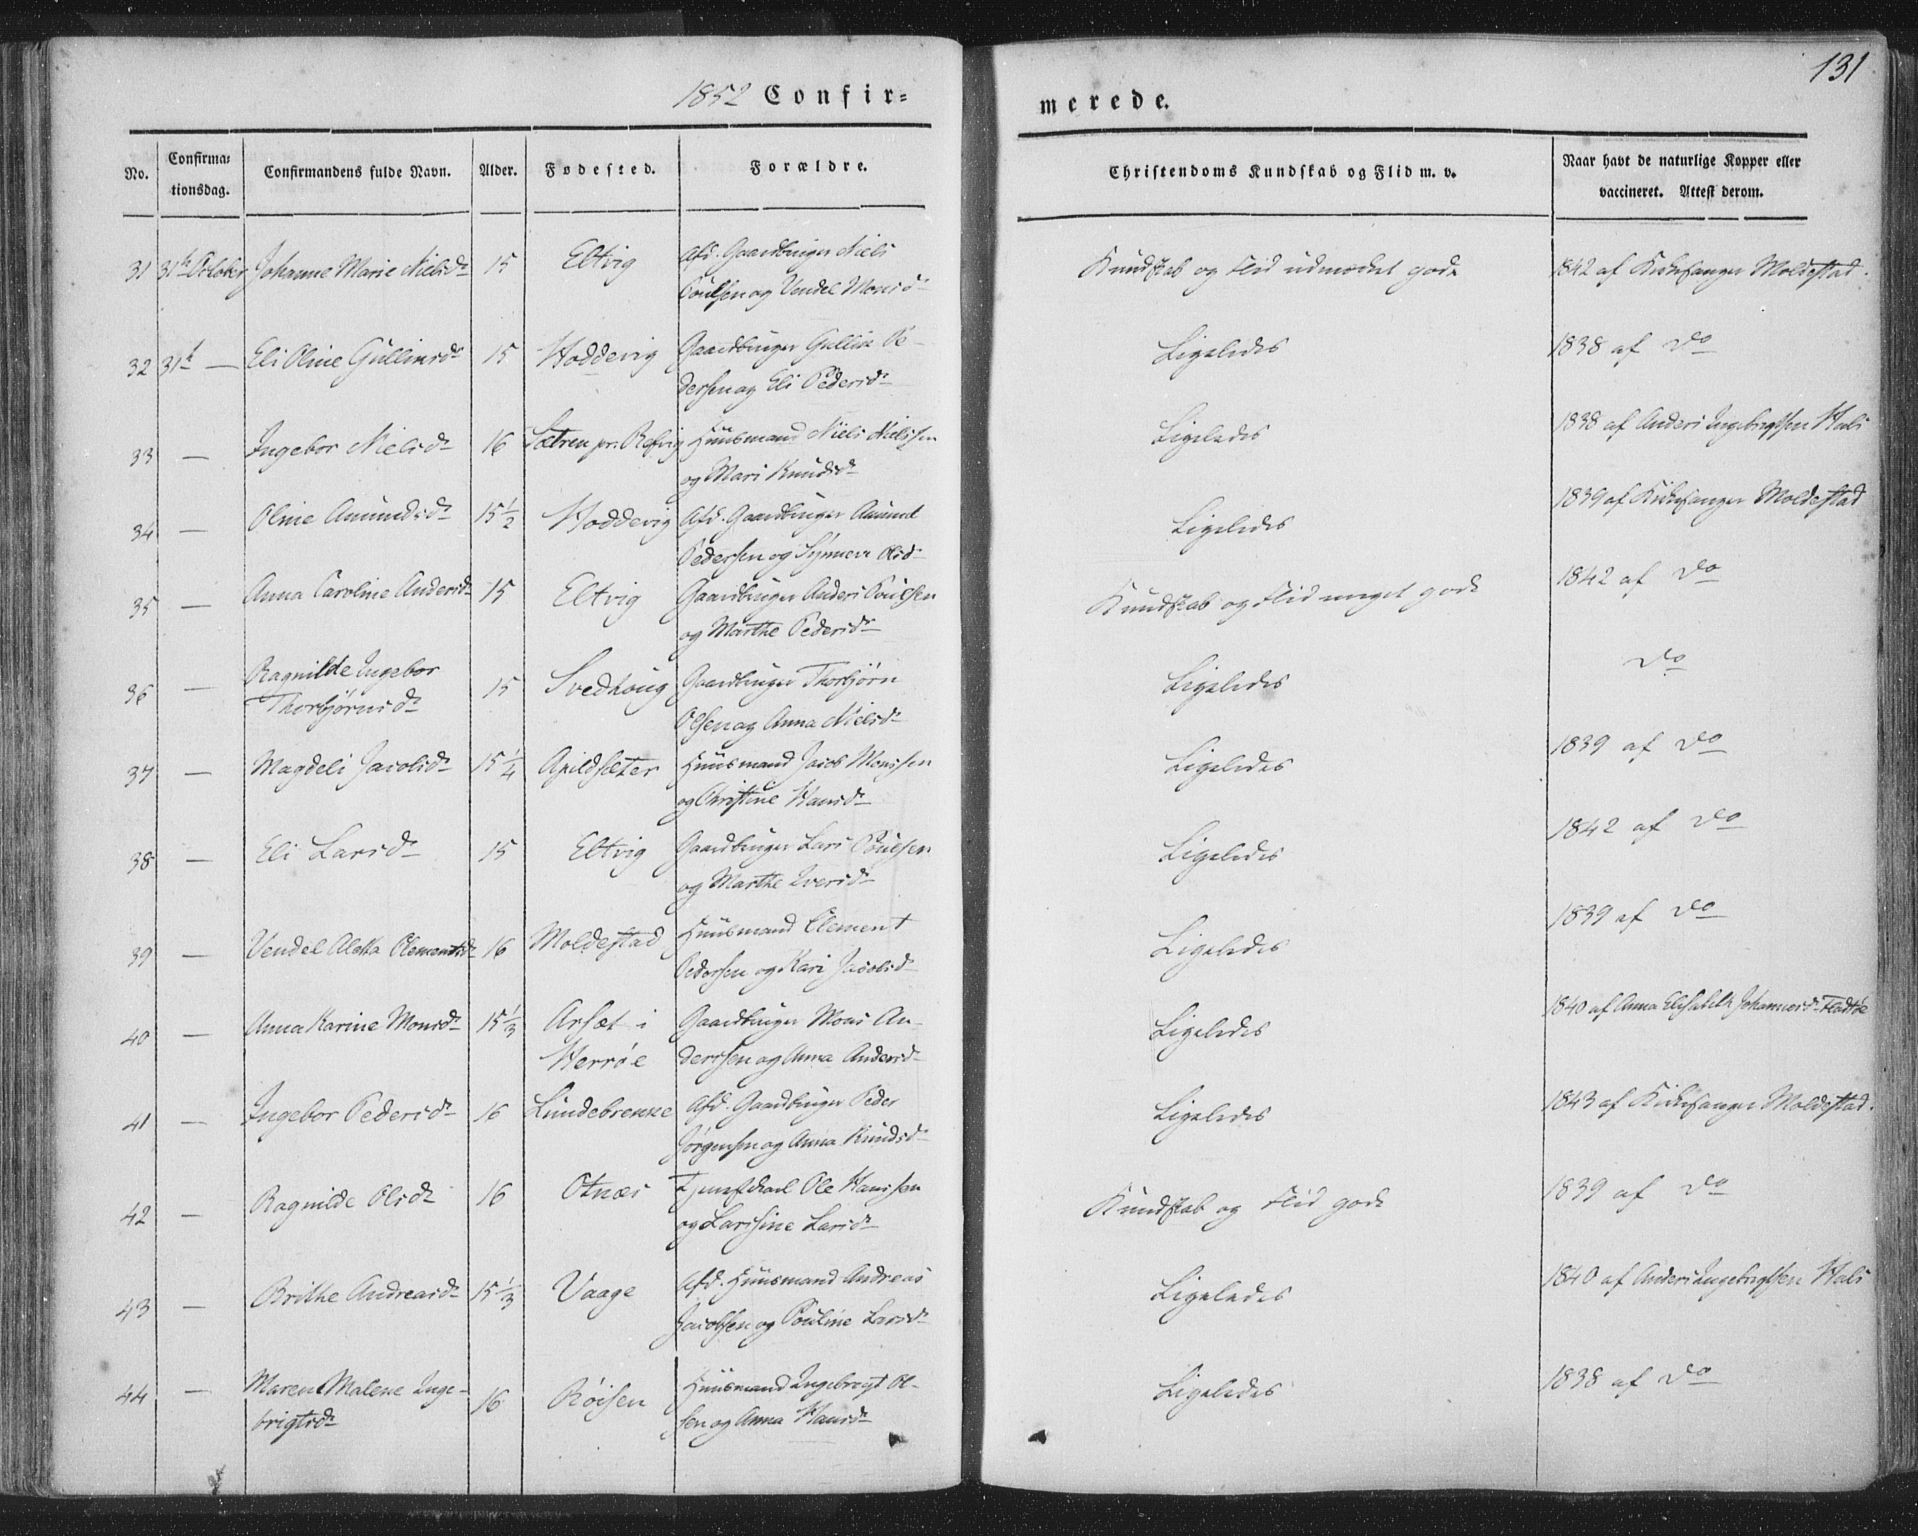 1852 Confir=
merede.
131
No.
Confirma=
tionsdag.
Confirmandens fulde Navn.
Alder.
Fødested.
Forældre.
Christendoms Kundskab og Flid m. v.
Naar havt de naturlige Kopper eller
vaccineret. Attest derom.
31 31te October Johanne Marie Nielsdr 15 Eltvig Afd. Gaardbruger Niels
Poulsen og Vendel Monsdr
Kundskab og Flid udmærket gode
1842 af Kirkesanger Moldestad.
32 31te — Eli Oline Gullinsdr 15 Hoddevig Gaardbruger Gullik Pe-
dersen og Eli Pedersdr
Ligeledes
1838 af Do
33 — Ingebor Nielsdr 16 Sætren pr. Refvig Huusmand Niels Nielssen
og Mari Knudsdr
Ligeledes
1838 af Anders Ingebrigtsen Hals
34 — Oline Amundsdr 15 1/2 Hoddevig Afd. Gaardbruger Amund
Pedersen og Synneve Olsdr
Ligeledes
1839 af Kirkesanger Moldestad
35 — Anna Caroline Andersdr 15 Eltvig Gaardbruger Anders Poulsen
og Marthe Pedersdr
Kundskab og Flid meget gode
1842 af Do
36 — Ragnilde Ingebor
Thorbjørnsdr 15 Svedhoug Gaardbruger Thorbjørn
Olsen og Anna Nielsdr
Ligeledes
Do
37 — Magdeli Jacobsdr 15 1/4 Apildsæter Huusmand Jacob Monssen
og Christine Hansdr
Ligeledes
1839 af Do
38 — Eli Larsdr 15 Eltvig Gaardbruger Lars Poulsen
og Marthe Iversdr
Ligeledes
1842 af Do
39 — Vendel Aletta Clementsdr 16 Moldestad Huusmand Clement
Pedersen og Kari Jacobsdr
Ligeledes
1839 af Do
40 — Anna Karine Monsdr 15 1/3 Arsæt i
Herrøe
Gaardbruger Mons An-
derssen og Anna Andersdr
Ligeledes
1840 af Anna Elisabeth Johannesdr Fladtøe
41 — Ingebor Pedersdr 16 Lundebrenne Afd. Gaardbruger Peder
Jørgensen og Anna Knudsdr
Ligeledes
1843 af Kirkesanger Moldestad.
42 — Ragnilde Olsdr 16 Otnæs Tjenestekarl Ole Hanssen
og Larssine Larsdr
Kundskab og Flid gode
1839 af Do
43 — Brithe Andreasdr 15 1/3 Vaage Afd. Huusmand Andreas
Jacobsen og Pouline Larsdr
Ligeledes
1840 af Anders Ingebrigtsen Hals
44 — Maren Malene Inge-
brigtsdr 16 Røisen Huusmand Ingebrigt Ol-
sen og Anna Hansdr
Ligeledes
1838 af Do